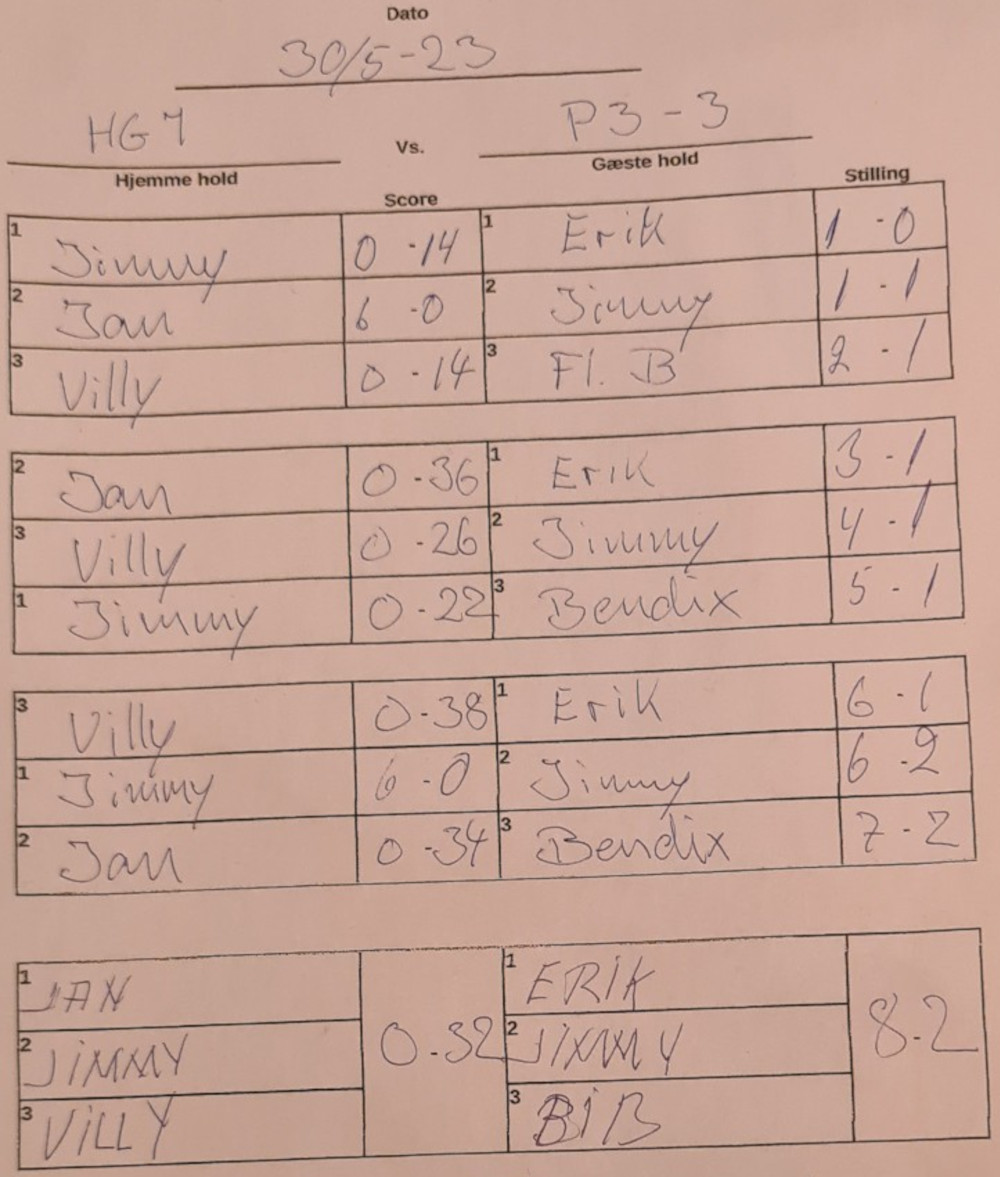 Dato
30/5-23
HG 1 Vs. P3-3
Hjemme hold Gæste hold
Score Stilling
1 Jimmy 0 -14 1 Erik 1 -0
2 Jan 6 -0 2 Jimmy 1 -1
3 Villy 0 -14 3 Fl. B 2 -1
2 Jan 0 -36 1 Erik 3 -1
3 Villy 0 -26 2 Jimmy 4 -1
1 Jimmy 0-22 3 Bendix 5 -1
3 Villy 0-38 1 Erik 6 -1
1 Jimmy 6 -0 2 Jimmy 6 -2
2 Jan 0 -34 3 Bendix 7 -2
1 JAN 1 ERIK
2 JIMMY 0-32 2 JIMMY 8-2
3 VILLY 3 BIB